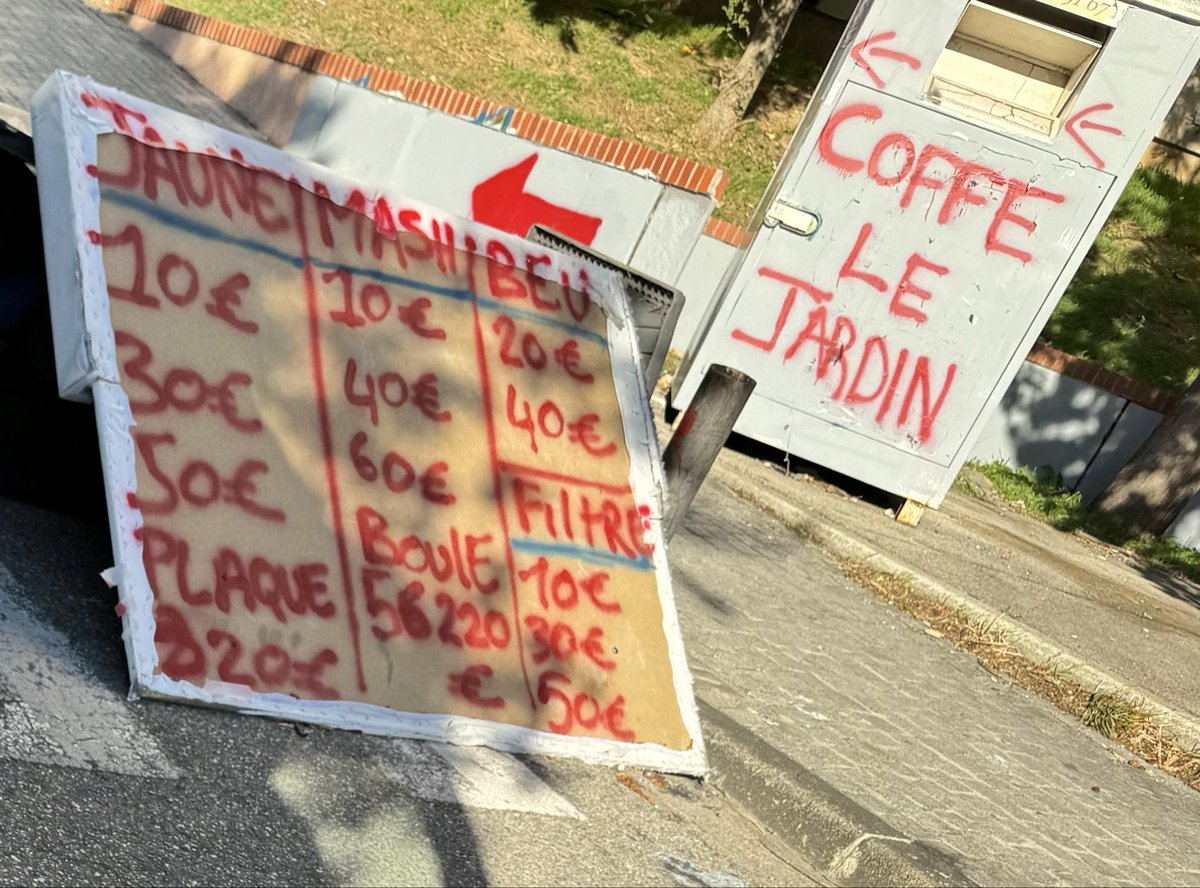 JAUNE
10€
30€
50€
PLAQUE
MASH
10€
40€
60€
BOULE
5G 220
€
BEU
20€
40€
FiltRE
10€
30€
50€
COFFE
LE
JARDIN